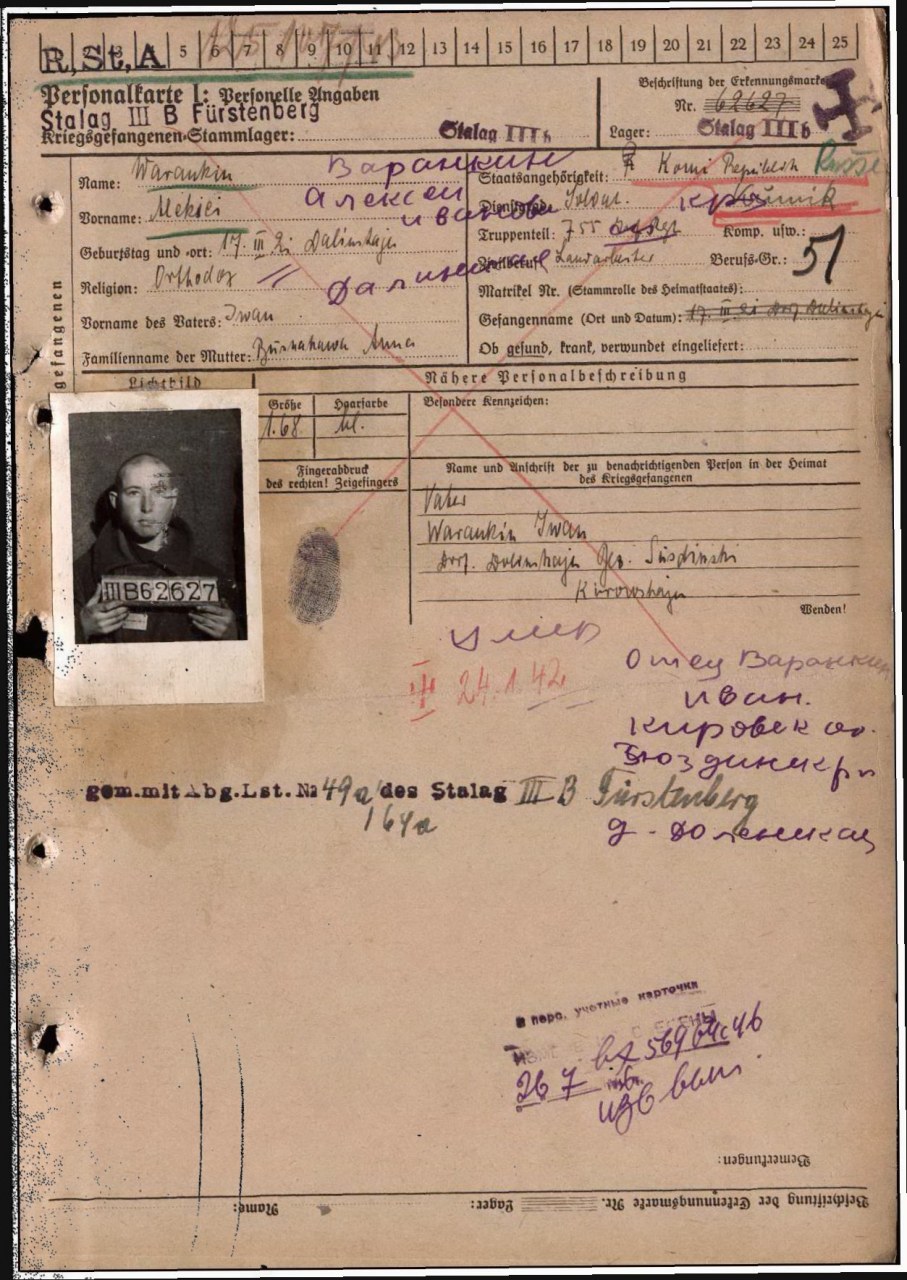 R.St.A 5 6 7 8 9 10 11 12 13 14 15 16 17 18 19 20 21 22 23 24 25
Personalkarte I: Personelle Angaben
Stalag III B Fürstenberg
Kriegsgefangenen-Stammlager: Stalag IIIb
Beschriftung der Erkennungsmarke
Nr. 62627
Lager: Stalag IIIb
Name: Warankin
Варанкин
Vorname: Aleksei
Алексей
Иванови
Geburtstag und -ort: 17. III 21 Dalinskaja
Religion: Orthodox
Vorname des Vaters: Iwan
Familienname der Mutter: Anna
Staatsangehörigkeit: Komi Republik Russe
Soldat
Truppenteil: 755 Komp. usw.:
Landarbeiter Berufs-Gr.: 51
Matrikel Nr. (Stammrolle des Heimatstaates):
Gefangenname (Ort und Datum): 17. III 21 Dorf
Ob gesund, krank, verwundet eingeliefert:
gefangenen
Lichtbild
Nähere Personalbeschreibung
Größe Haarfarbe Besondere Kennzeichen:
1.68 bl.
Fingerabdruck
des rechten! Zeigefingers
Name und Anschrift der zu benachrichtigenden Person in der Heimat
des Kriegsgefangenen
Vater
Warankin Iwan
Dorf. Dolinskaja
Kirowskaja
Wenden!
IIIB62627
умер
24.1.42
Отец Варанкин
Иван.
Кировск
gem.mit Abg.Lst. № 49a des Stalag III B Fürstenberg
164a
В перс. учетные карточки
26 7
Bemerkungen:
Beschriftung der Erkennungsmarke Nr. Lager: Name: